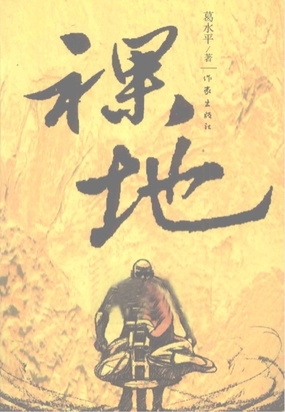 葛水平/著
作家出版社
裸地